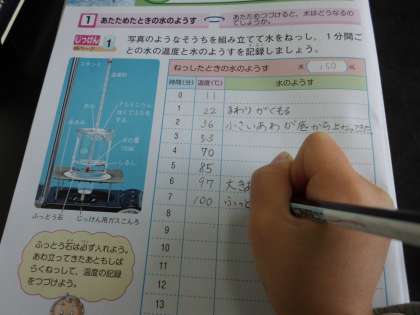 1 あたためたときの水のようす
あたためつづけると、水はどうなるのでしょうか。
じっけん 1
写真のようなそうちを組み立てて水をねっし、1分間ご
との水の温度と水のようすを記録しましょう。
ねっしたときの水のようす 水 150
時間(分) 温度(℃) 水のようす
0 11
1 22 まわりがくもる
2 36 小さいあわが底から上
3 53
4 70
5 85
6 97 大き
7 100 ふっと
8
9
10
11
12
13
スタンド
温度計
ふっとう石 じっけん用ガスこんろ
ふっとう石は必ず入れよう。
あわ立ってきたあともしば
らくねっして、温度の記録
をつづけよう。